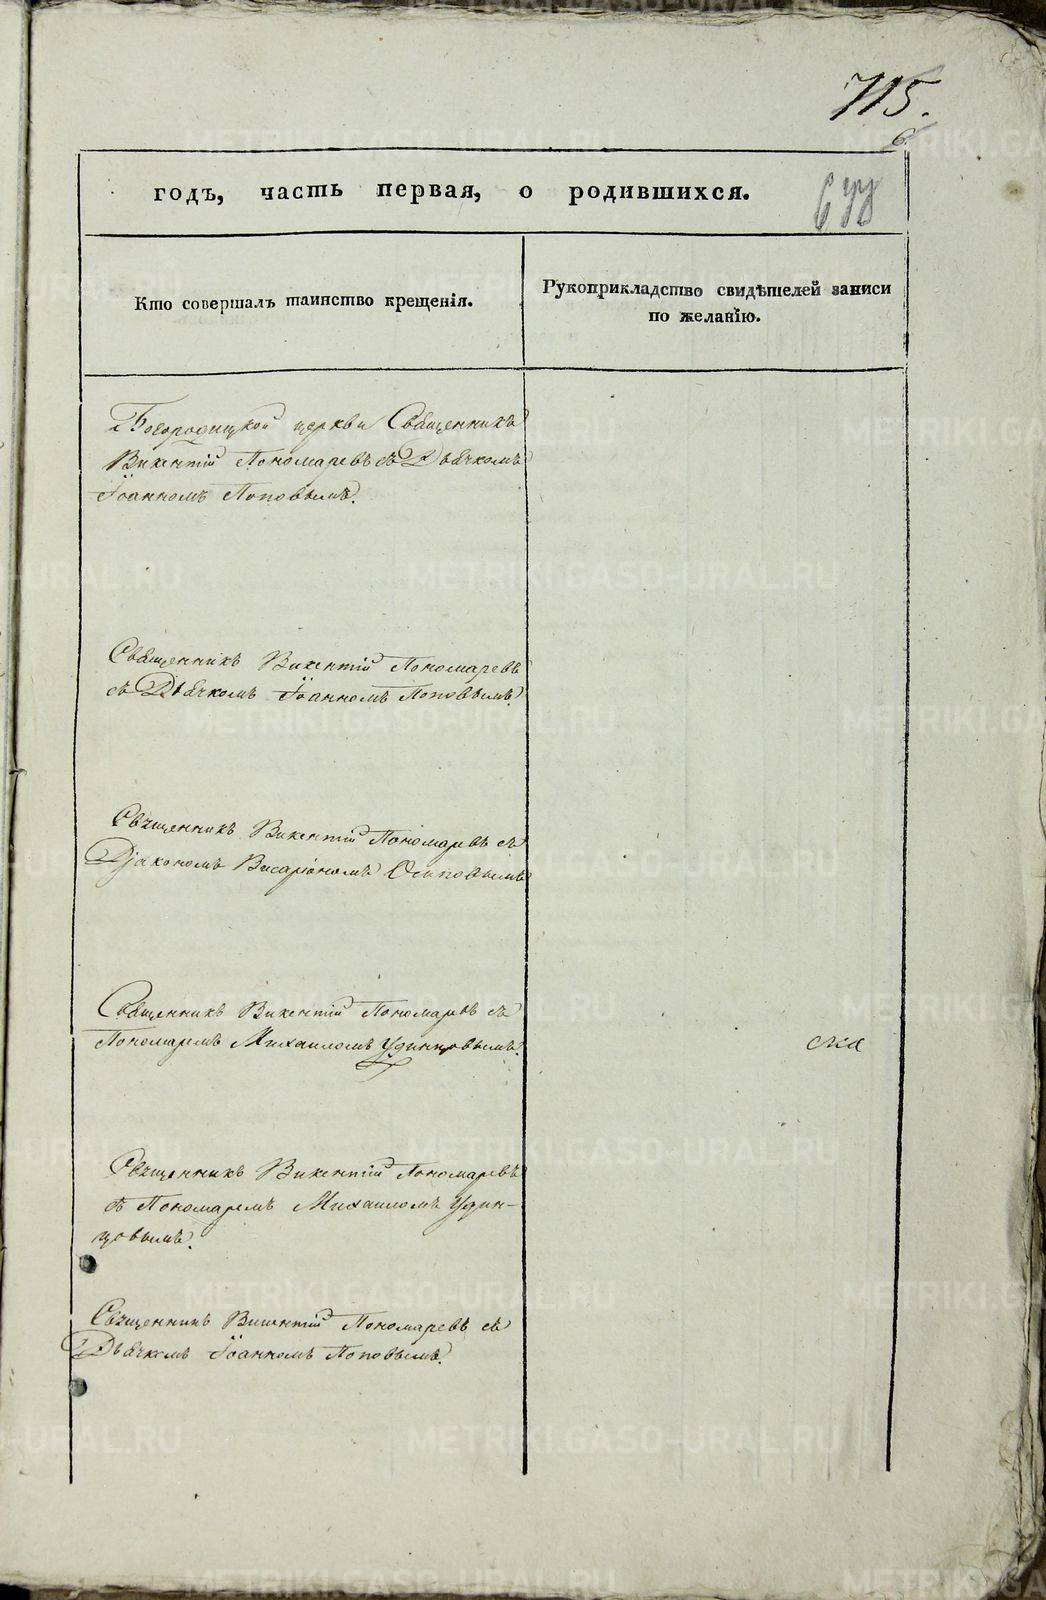 715.
годъ, часть первая, о родившихся.
Кто совершалъ таинство крещенія.
Рукоприкладство свидѣтелей записи
по желанію.
Богородицкой церкви Священникъ
Викентій Пономаревъ съ Дьячкомъ
Іоанномъ Поповымъ.
Священникъ Викентій Пономаревъ
съ Дьячкомъ Іоанномъ Поповымъ.
Священникъ Викентій Пономаревъ съ
Діакономъ Висаріономъ Осиповымъ
Священникъ Викентій Пономаревъ съ
Пономаремъ Михаиломъ Удинцовымъ.
ска
Священникъ Викентій Пономаревъ
съ Пономаремъ Михаиломъ Удин-
цовымъ.
Священникъ Викентій Пономаревъ съ
Дьячкомъ Іоанномъ Поповымъ.
METRIKI.GASO-URAL.RU